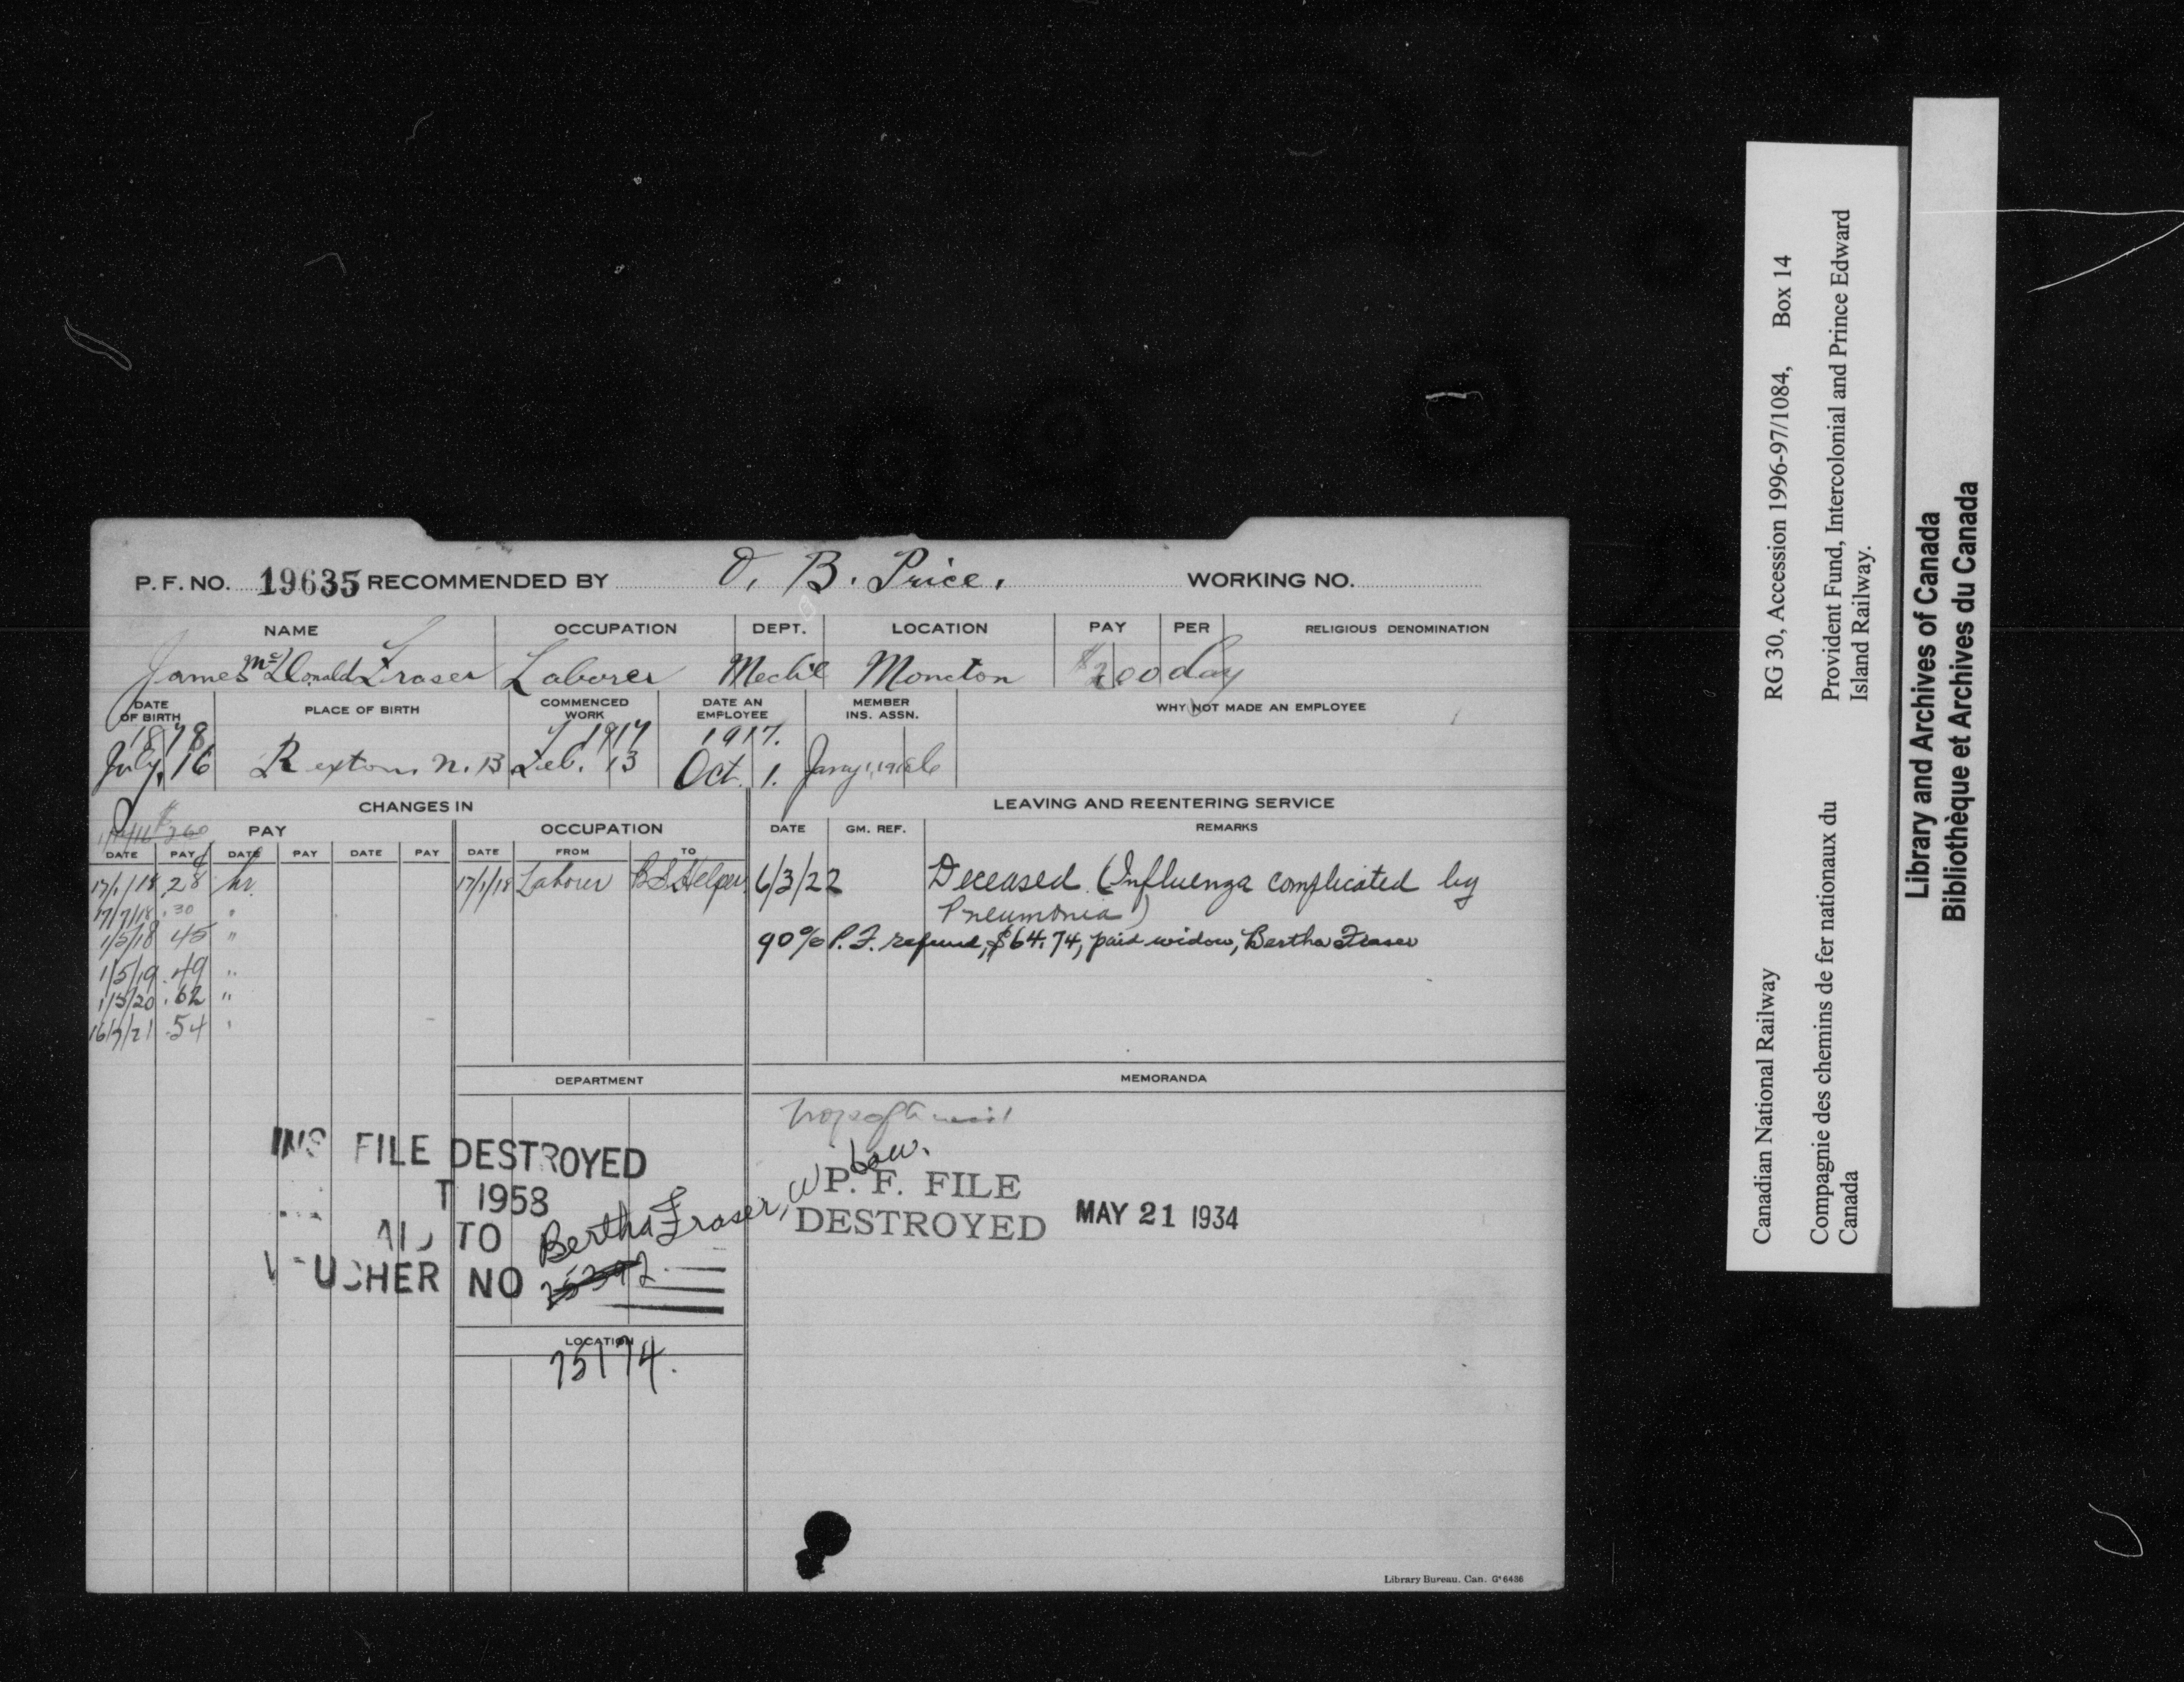 P. F. NO. 19635 RECOMMENDED BY O. B. Price. WORKING NO.
NAME OCCUPATION DEPT. LOCATION PAY PER RELIGIOUS DENOMINATION
James McDonald Fraser Laborer Mech'l Moncton $2.00 day
DATE OF BIRTH PLACE OF BIRTH COMMENCED WORK DATE AN EMPLOYEE MEMBER INS. ASSN. WHY NOT MADE AN EMPLOYEE
1878 1917 1917.
July, 16 Rexton, N.B Feb. 13 Oct. 1.
CHANGES IN LEAVING AND REENTERING SERVICE
PAY OCCUPATION DATE GM. REF. REMARKS
DATE PAY DATE PAY DATE PAY DATE FROM TO
17/1/18 .28 hr. 17/1/18 Laborer B.S. Helper 6/3/22 Deceased (Influenza complicated by
Pneumonia)
17/7/18 .30 "
1/5/18 45 " 90% P.F. refund, $64.74, paid widow, Bertha Fraser
1/5/19 .49 "
1/5/20 .62 "
16/7/21 .54 "
DEPARTMENT MEMORANDA
INS FILE DESTROYED
T 1958
TO Bertha Fraser, widow.
P. F. FILE
DESTROYED MAY 21 1934
NO
LOCATION
75174.
Library Bureau. Can. G'6486
Canadian National Railway RG 30, Accession 1996-97/1084, Box 14
Compagnie des chemins de fer nationaux du Canada
Provident Fund, Intercolonial and Prince Edward Island Railway.
Library and Archives of Canada
Bibliothèque et Archives du Canada